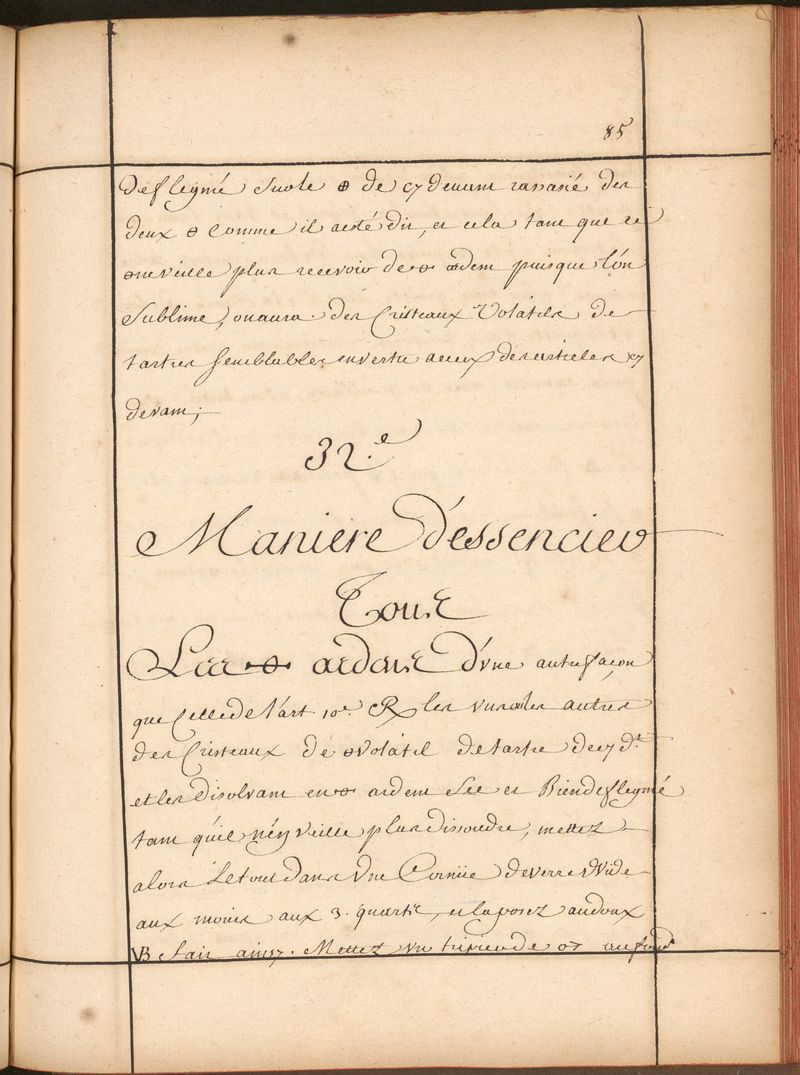 85
deflegmé sur le 🜔 de cy devant rassasié des
deux 🜔 comme il a esté dit, et cela tant que ce
🜔 ne veille plus recevoir de ardent puisque l'on
Sublime, on aura des Cristeaux Volatils de
tartres semblables en vertu a ceux des articles cy
devant;
32.e
Maniere d'essencier
Tous
Les ardens d'vne autre façon
que Celle de l'art 10e ℞ les vns ou les autres
des Cristeaux de 🜔 volatil de tartre de cy dt
et les disolvant en ardent Sec et Bien deflegmé
tant qu'il n'en veille plus dissoudre, mettez
alors le tout dans Vne Cornüe de verre Vuide
aux moins aux 3. quarts, et la posez au doux
VB fait ainsy. Mettez un tripied de au fond